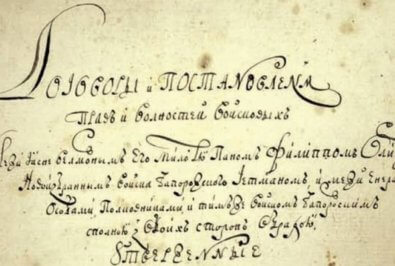 Договоры и Постановленя
Правъ и волностей Войсковыхъ
Ясне велможнымъ Его Паномъ Филиппомъ Орли
Новоизбраннымъ Войска Запорозского Гетманомъ, и межи Енера
Особами, Полковниками, и тимъ же Войскомъ Запорозкимъ
сполною з обоихъ сторонъ обрадою,
Утверженные